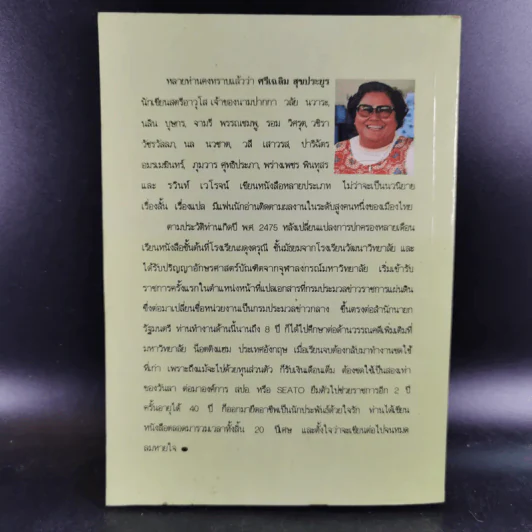 หลายท่านคงทราบแล้วว่า ศรีเฉลิม สุขประยูร
นักเขียนสตรีอาวุโส เจ้าของนามปากกา วลัย นวาระ,
นลิน บุษกร, จามรี พรรณชมพู, รอม วิศรุต, วชิรา
วัชรวัลลภ, นล นวชาต, วลี เสาวรส, ปาริฉัตร
อมรเมธินทร์, ภุมวาร ศุทธิประภา, พร่างเพชร พิษฐสร
และ รวินท์ เวโรจน์ เขียนหนังสือหลายประเภท ไม่ว่าจะเป็นนวนิยาย
เรื่องสั้น เรื่องแปล มีแฟนนักอ่านติดตามผลงานในระดับสูงคนหนึ่งของเมืองไทย
ตามประวัติท่านเกิดปี พ.ศ. 2475 หลังเปลี่ยนแปลงการปกครองหลายเดือน
เรียนหนังสือชั้นต้นที่โรงเรียนผดุงดรุณี ชั้นมัธยมจากโรงเรียนวัฒนาวิทยาลัย และ
ได้รับปริญญาอักษรศาสตร์บัณฑิตจากจุฬาลงกรณ์มหาวิทยาลัย เริ่มเข้ารับ
ราชการครั้งแรกในตำแหน่งหน้าที่แปลเอกสารที่กรมประมวลข่าวราชการแผ่นดิน
ซึ่งต่อมาเปลี่ยนชื่อหน่วยงานเป็นกรมประมวลข่าวกลาง ขึ้นตรงต่อสำนักนายก
รัฐมนตรี ท่านทำงานด้านนี้นานถึง 8 ปี ก็ได้ไปศึกษาต่อด้านวรรณคดีเพิ่มเติมที่
มหาวิทยาลัย น็อตติงแฮม ประเทศอังกฤษ เมื่อเรียนจบต้องกลับมาทำงานชดใช้
ที่เก่า เพราะถึงแม้จะไปด้วยทุนส่วนตัว ก็รับเงินเดือนเต็ม ต้องชดใช้เป็นสองเท่า
ของวันลา ต่อมาองค์การ สปอ. หรือ SEATO ยืมตัวไปช่วยราชการอีก 2 ปี
ครั้นอายุได้ 40 ปี ก็ออกมายึดอาชีพเป็นนักประพันธ์ด้วยใจรัก ท่านได้เขียน
หนังสือตลอดมารวมเวลาทั้งสิ้น 20 ปีเศษ และตั้งใจว่าจะเขียนต่อไปจนหมด
ลมหายใจ